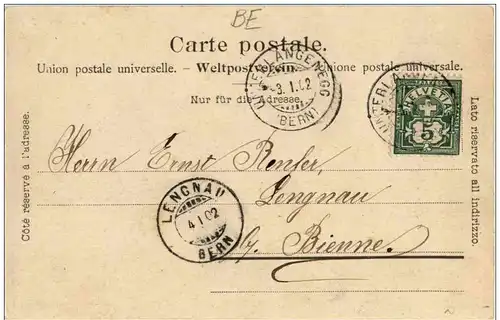 BE
Carte postale.
Union postale universelle. — Weltpostverein. — Unione postale universale.
Nur für die Adresse.
UNTERLANGENEGG
-3.1.02
(BERN)
UNTERLA
HELVETIA
5
Côté réservé à l'adresse.
Lato riservato all indirizzo.
Herrn Ernst Renfer,
Lengnau
b/ Bienne.
LENGNAU
4.I.02
BERN